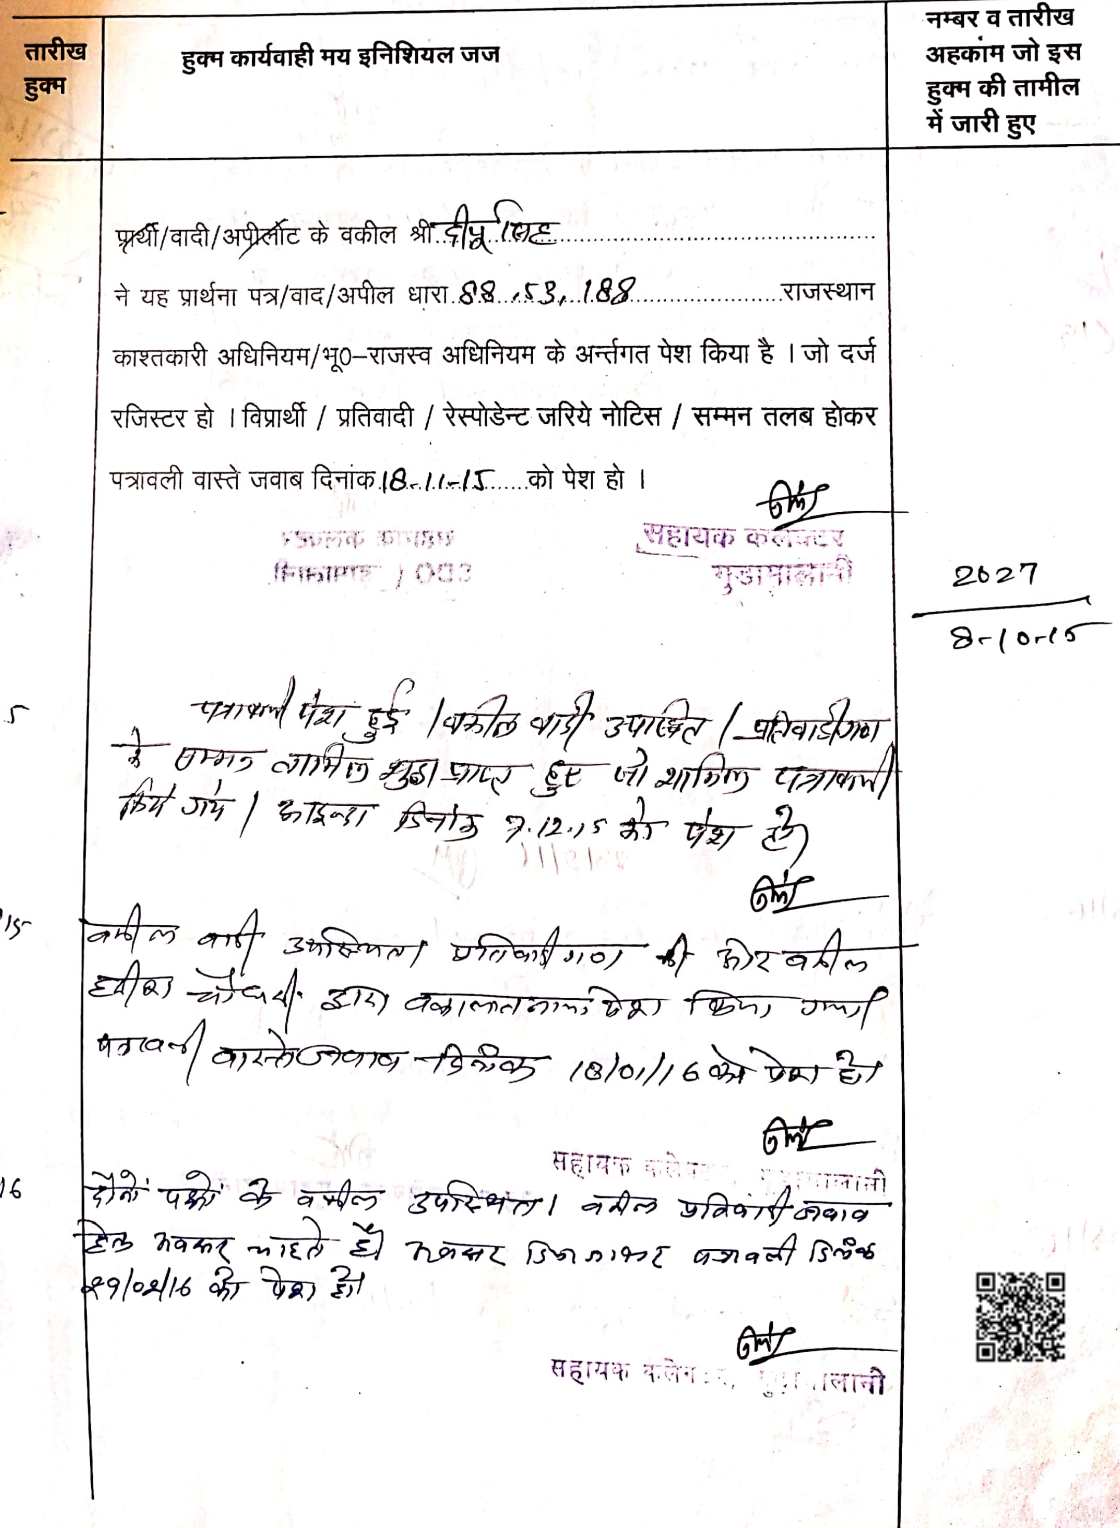 तारीख
हुक्म
हुक्म कार्यवाही मय इनिशियल जज
नम्बर व तारीख
अहकाम जो इस
हुक्म की तामील
में जारी हुए
प्रार्थी/वादी/अपीलॉट के वकील श्री दीपू सिंह
ने यह प्रार्थना पत्र/वाद/अपील धारा 88,53,188 राजस्थान
काश्तकारी अधिनियम/भू0-राजस्व अधिनियम के अर्न्तगत पेश किया है । जो दर्ज
रजिस्टर हो । विप्रार्थी / प्रतिवादी / रेस्पोडेन्ट जरिये नोटिस / सम्मन तलब होकर
पत्रावली वास्ते जवाब दिनांक 18-11-15 को पेश हो ।
सहायक कलक्टर
गुडामालानी
2027
8-10-15
5
पत्रावली पेश हुई । वकील वादी उपस्थित । प्रतिवादीगण
के सम्मन तामिल शुदा प्राप्त हुए जो शामिल पत्रावली
किये गये । आइन्दा दिनांक 7.12.15 को पेश हो
15
वकील वादी उपस्थित। प्रतिवादीगण की ओर वकील
चौधरी द्वारा वकालतनामा पेश किया गया।
पत्रावली वास्ते जवाब दिनांक 18/01/16 को पेश हो।
सहायक
16
दोनों पक्षों के वकील उपस्थित। वकील प्रतिवादी जवाब
हेतु अवसर चाहते है। अवसर दिया जाकर पत्रावली दिनांक
29/02/16 को पेश हो।
सहायक